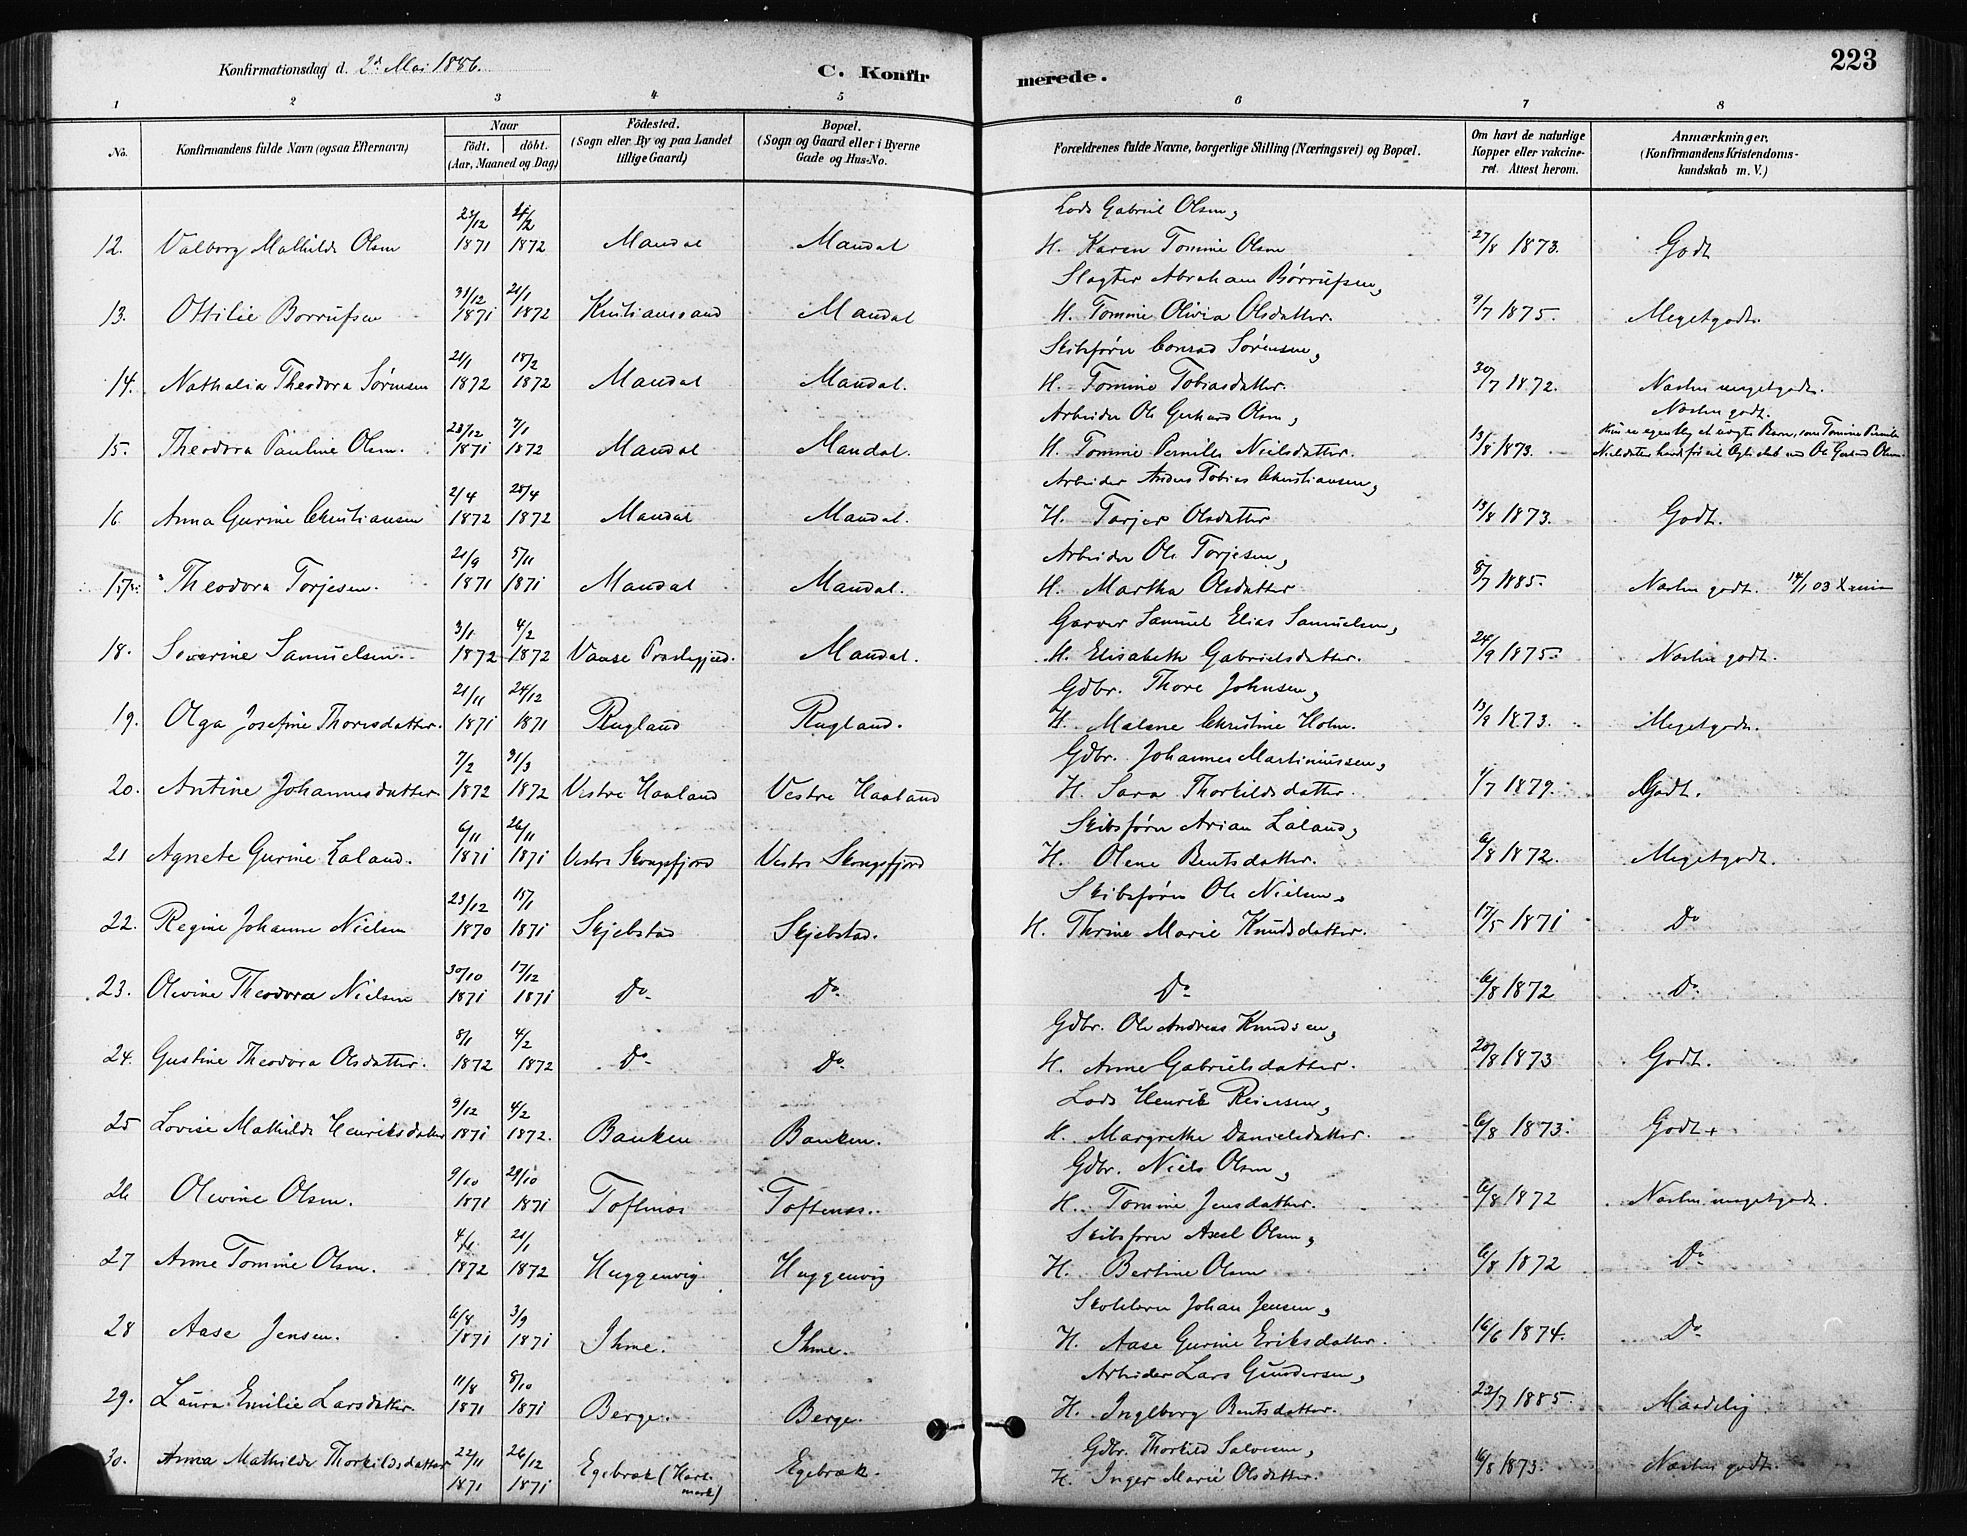 Konfirmationsdag d. 2d Mai 1886.
C. Konfirmerede.
223
1 2 3 4 5 6 7 8
No. Konfirmandens fulde Navn (ogsaa Efternavn) Naar født. døbt. (Aar, Maaned og Dag) Fødested. (Sogn eller By og paa Landet tillige Gaard) Bopæl. (Sogn og Gaard eller i Byerne Gade og Hus-No. Forældrenes fulde Navne, borgerlige Stilling (Næringsvei) og Bopæl. Om havt de naturlige Kopper eller vakcineret. Attest herom. Anmærkninger. (Konfirmandens Kristendomskundskab m. V.)
12. Valborg Mathilde Olsen 23/12 1871 24/2 1872 Mandal Mandal Lods Gabriel Olsen,
H. Karen Tomine Olsen 27/8 1873. Godt
13. Ottilie Børrufsen 31/12 1871 21/1 1872 Kristianssand Mandal Slagter Abraham Børrufsen,
H. Tomine Olivia Olsdatter. 9/7 1875. Megetgodt.
14. Nathalia Theodora Sørensen 21/1 1872 18/2 1872 Mandal Mandal. Skibsfører Conrad Sørensen,
H. Tomine Tobiasdatter. 30/7 1872. Næsten megetgodt.
15. Theodora Pauline Olsen. 23/12 1871 7/1 1872 Mandal Mandal. Arbeider Ole Gerhard Olsen,
H. Tomine Pernille Nielsdatter. 13/8 1873. Næsten godt.
Hun er egentlig et uægte Barn, som Tomine Pernille
Nielsdatter havde før sit Ægteskab med Ole Gerhard Olsen.
16. Anna Gurine Christiansen 2/4 1872 28/4 1872 Mandal Mandal. Arbeider Anders Tobias Christiansen,
H. Torjer Olsdatter 13/8 1873. Godt.
17. Theodora Torjesen. 21/9 1871 5/11 1871 Mandal Mandal. Arbeider Ole Torjesen,
H. Martha Olsdatter 8/7 1885. Næsten godt. 14/1 03
18. Severine Samuelsen. 3/1 1872 4/2 1872 Vanse Præstegjæld. Mandal. Garver Samuel Elias Samuelsen,
H. Elisabeth Gabrielsdatter. 24/9 1875. Næsten godt.
19. Olga Josefine Thoresdatter. 21/11 1871 24/12 1871 Rugland Rugland. Gdbr. Thore Johnsen,
H. Malene Christine Holm. 13/8 1873. Megetgodt.
20. Antine Johannesdatter 7/2 1872 31/3 1872 Vestre Haaland Vestre Haaland Gdbr. Johannes Martiniussen,
H. Sara Thorkildsdatter. 1/7 1879. Godt.
21 Agnete Gurine Laland. 6/11 1871 26/11 1871 Vestre Skougsfjord Vestre Skougsfjord Skibsfører Arian Laland,
H. Olene Bentsdatter. 6/8 1872. Megetgodt.
22. Regine Johanne Nielsen 23/12 1870 15/1 1871 Skjebstad Skjebstad. Skibsfører Ole Nielsen,
H. Thrine Marie Knudsdatter. 17/5 1871 Do
23. Olevine Theodora Nielsen 30/10 1871 17/12 1871 Do Do Do 6/8 1872 Do
24. Gustine Theodora Olsdatter. 8/1 1872 4/2 1872 Do Do Gdbr. Ole Andreas Knudsen,
H. Anne Gabrielsdatter. 20/8 1873 Godt.
25 Lovise Mathilde Henriksdatter 9/12 1871 4/2 1872. Banken Banken. Lods Henrik Reiersen,
H. Margrethe Danielsdatter. 6/8 1873. Godt+
26 Olevine Olsen. 9/10 1871 29/10 1871 Toftenæs Toftenæs. Gdbr. Niels Olsen,
H. Tomine Jensdatter. 6/8 1872 Næsten megetgodt.
27 Anne Tomine Olsen. 4/1 1872 21/1 1872 Huggenvig. Huggenvig Skibsfører Axel Olsen,
H. Bertine Olsen 6/8 1872 Do
28 Aase Jensen. 6/8 1871 3/9 1871 Ihme. Ihme. Skolelærer Johan Jensen,
H. Aase Gurine Eriksdatter. 16/6 1874. Do
29. Laura Emilie Larsdatter. 11/8 1871 8/10 1871 Berge. Berge. Arbeider Lars Gundersen,
H. Ingeborg Bentsdatter. 22/7 1885. Maadelig
30. Anna Mathilde Thorkildsdatter 22/11 1871 26/12 1871 Egebræk (Hartmark) Egebræk. Gdbr. Thorkild Salvesen,
H. Inger Marie Olsdatter. 6/8 1873. Næsten godt.